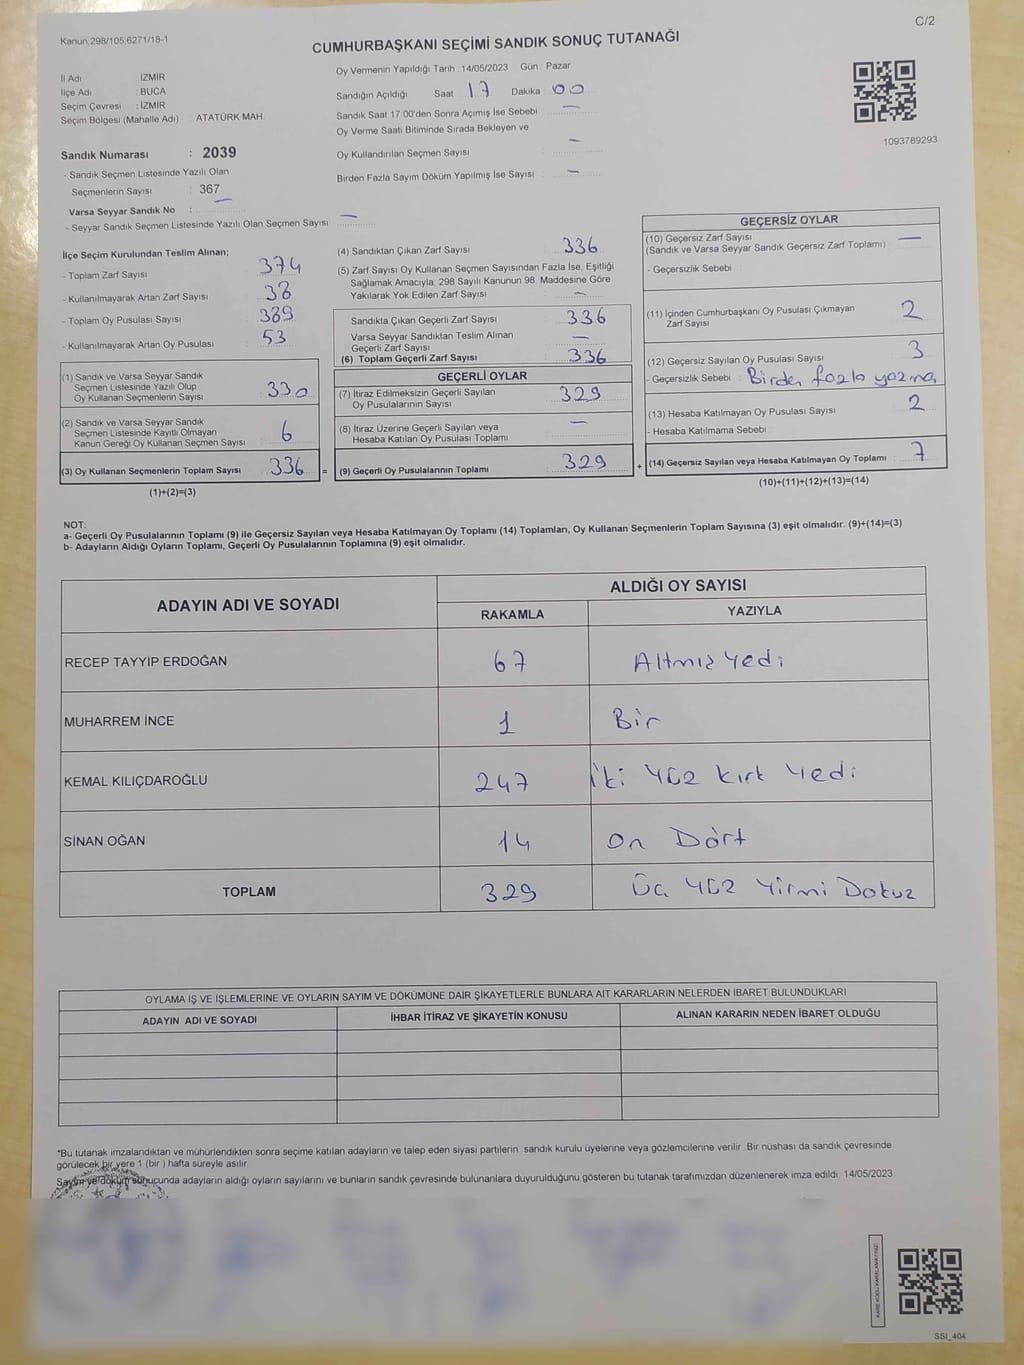 C/2
Kanun;298/105;6271/18-1
CUMHURBAŞKANI SEÇİMİ SANDIK SONUÇ TUTANAĞI
İl Adı : İZMİR
İlçe Adı : BUCA
Seçim Çevresi : İZMİR
Seçim Bölgesi (Mahalle Adı) : ATATÜRK MAH.
Sandık Numarası : 2039
- Sandık Seçmen Listesinde Yazılı Olan
Seçmenlerin Sayısı : 367
Varsa Seyyar Sandık No : —
- Seyyar Sandık Seçmen Listesinde Yazılı Olan Seçmen Sayısı : —
Oy Vermenin Yapıldığı Tarih : 14/05/2023 Gün : Pazar
Sandığın Açıldığı Saat 17 Dakika 00
Sandık Saat 17.00'den Sonra Açımış İse Sebebi : —
Oy Verme Saati Bitiminde Sırada Bekleyen ve
Oy Kullandırılan Seçmen Sayısı : —
Birden Fazla Sayım Döküm Yapılmış İse Sayısı : —
1093789293
İlçe Seçim Kurulundan Teslim Alınan;
- Toplam Zarf Sayısı : 374
- Kullanılmayarak Artan Zarf Sayısı : 38
- Toplam Oy Pusulası Sayısı : 389
- Kullanılmayarak Artan Oy Pusulası : 53
(1) Sandık ve Varsa Seyyar Sandık
Seçmen Listesinde Yazılı Olup
Oy Kullanan Seçmenlerin Sayısı : 330
(2) Sandık ve Varsa Seyyar Sandık
Seçmen Listesinde Kayıtlı Olmayan
Kanun Gereği Oy Kullanan Seçmen Sayısı : 6
(3) Oy Kullanan Seçmenlerin Toplam Sayısı : 336 =
(1)+(2)=(3)
(4) Sandıktan Çıkan Zarf Sayısı : 336
(5) Zarf Sayısı Oy Kullanan Seçmen Sayısından Fazla İse, Eşitliği
Sağlamak Amacıyla; 298 Sayılı Kanunun 98. Maddesine Göre
Yakılarak Yok Edilen Zarf Sayısı : —
Sandıkta Çıkan Geçerli Zarf Sayısı : 336
Varsa Seyyar Sandıktan Teslim Alınan
Geçerli Zarf Sayısı : —
(6) Toplam Geçerli Zarf Sayısı : 336
GEÇERLİ OYLAR
(7) İtiraz Edilmeksizin Geçerli Sayılan
Oy Pusulalarının Sayısı : 329
(8) İtiraz Üzerine Geçerli Sayılan veya
Hesaba Katılan Oy Pusulası Toplamı : —
(9) Geçerli Oy Pusulalarının Toplamı : 329 +
GEÇERSİZ OYLAR
(10) Geçersiz Zarf Sayısı : —
(Sandık ve Varsa Seyyar Sandık Geçersiz Zarf Toplamı)
- Geçersizlik Sebebi
(11) İçinden Cumhurbaşkanı Oy Pusulası Çıkmayan
Zarf Sayısı : 2
(12) Geçersiz Sayılan Oy Pusulası Sayısı : 3
- Geçersizlik Sebebi : Birden fazla yazma
(13) Hesaba Katılmayan Oy Pusulası Sayısı : 2
- Hesaba Katılmama Sebebi :
(14) Geçersiz Sayılan veya Hesaba Katılmayan Oy Toplamı : 7
(10)+(11)+(12)+(13)=(14)
NOT:
a- Geçerli Oy Pusulalarının Toplamı (9) ile Geçersiz Sayılan veya Hesaba Katılmayan Oy Toplamı (14) Toplamları, Oy Kullanan Seçmenlerin Toplam Sayısına (3) eşit olmalıdır. (9)+(14)=(3)
b- Adayların Aldığı Oyların Toplamı, Geçerli Oy Pusulalarının Toplamına (9) eşit olmalıdır.
ADAYIN ADI VE SOYADI ALDIĞI OY SAYISI
RAKAMLA YAZIYLA
RECEP TAYYİP ERDOĞAN 67 Altmış Yedi
MUHARREM İNCE 1 Bir
KEMAL KILIÇDAROĞLU 247 İki Yüz Kırk Yedi
SİNAN OĞAN 14 On Dört
TOPLAM 329 Üç Yüz Yirmi Dokuz
OYLAMA İŞ VE İŞLEMLERİNE VE OYLARIN SAYIM VE DÖKÜMÜNE DAİR ŞİKAYETLERLE BUNLARA AİT KARARLARIN NELERDEN İBARET BULUNDUKLARI
ADAYIN ADI VE SOYADI İHBAR İTİRAZ VE ŞİKAYETİN KONUSU ALINAN KARARIN NEDEN İBARET OLDUĞU
*Bu tutanak imzalandıktan ve mühürlendikten sonra seçime katılan adayların ve talep eden siyasi partilerin sandık kurulu üyelerine veya gözlemcilerine verilir. Bir nüshası da sandık çevresinde
görülecek bir yere 1 (bir ) hafta süreyle asılır.
Sayım ve döküm sonucunda adayların aldığı oyların sayılarını ve bunların sandık çevresinde bulunanlara duyurulduğunu gösteren bu tutanak tarafımızdan düzenlenerek imza edildi. 14/05/2023
KARE KODU KARALAMAYINIZ!
SSI_404